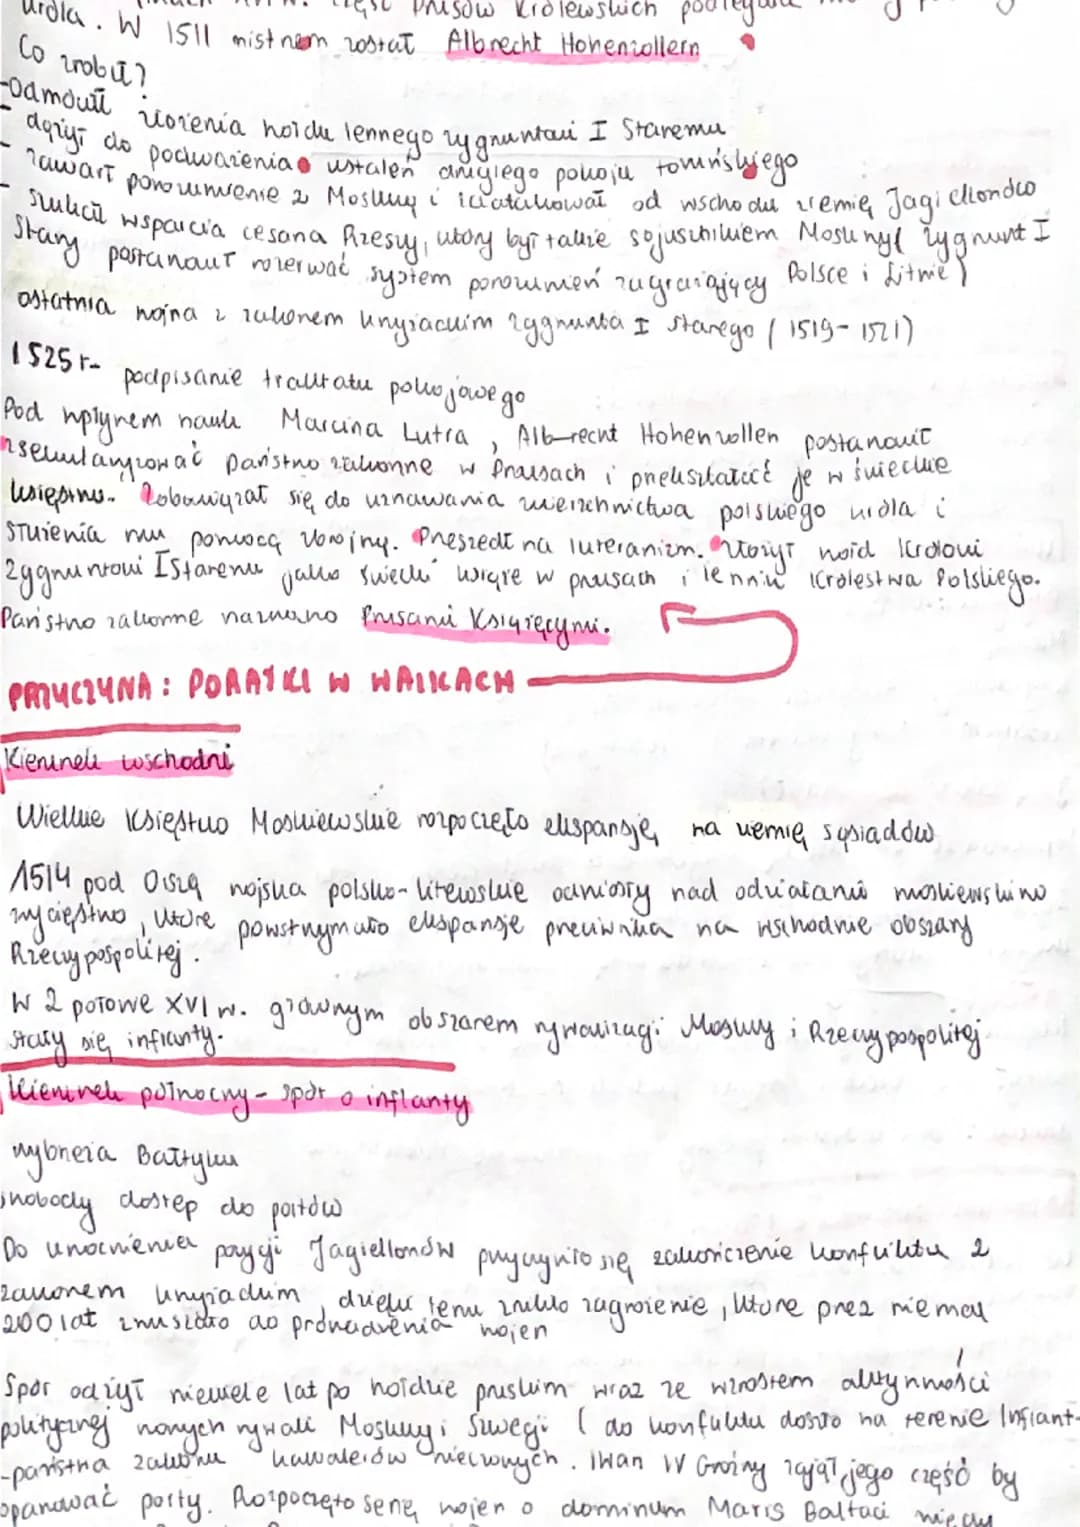 część Prusów Królewskich
króla. W 1511 mistrzem został Albrecht Hohenzollern
Co zrobił?
-odmówił złożenia hołdu lennego zygmuntowi I Staremu
- dążył do podważenia ustaleń drugiego pokoju toruńskiego
- zawarł porozumienie z Moskwą i zaatakował od wschodu ziemię Jagiellonów
- szukał wsparcia cesarza Rzeszy, który był także sojusznikiem Moskwy ( zygmunt I
Stary postanowił rozerwać system porozumień zagrażający Polsce i Litwie )
ostatnia wojna z zakonem krzyżackim zygmunta I starego ( 1519- 1521)
1525 r- podpisanie traktatu pokojowego
Pod wpływem nauk Marcina Lutra , Albrecht Hohenzollen postanowił
zsekularyzować państwo zakonne w Prusach i przekształcić je w świeckie
księstwo. Zobowiązał się do uznawania zwierzchnictwa polskiego króla i
służenia mu pomocą zbrojną. Przeszedł na luteranizm. Złożył hołd Królowi
Zygmuntowi I Staremu jako świecki książe w prusach i lennik Królestwa Polskiego.
Państwo zakonne nazwano Prusami Książęcymi.
PRZYCZYNA: PORAŻKI W WALKACH
Kierunek wschodni
Wielkie Księstwo Moskiewskie rozpoczęło ekspansję na ziemię sąsiadów
1514 pod Orszą wojska polsko-litewskie odniosły nad odziałami moskiewskimi
zwycięstwo, które powstrzymało ekspansję przeciwnika na wschodnie obszary
Rzeczypospolitej.
W 2 połowe XVI w. głównym obszarem rywalizacji Moskwy i Rzeczypospolitej
stały się inflanty.
Kierunek północny- spór o inflanty
wybrzeża Bałtyku
swobody dostęp do portów
Do umocnienia pozycji Jagiellonów przyczyniło się zakończenie konfliktu z
zakonem krzyżackim, dzięki temu znikło zagrożenie, które przez niemal
200 lat zmuszało do prowadzenia wojen
Spór odżył niewiele lat po hołdzie pruskim wraz ze wzrostem aktywności
politycznej nowych rywali Moskwy i Szwecji ( do konfliktu doszło na terenie Inflant-
-państwa zakonu kawalerów mieczowych. Iwan IV Groźny zajął jego część by
opanować porty. Rozpoczęto serię wojen o dominum Maris Baltaci między